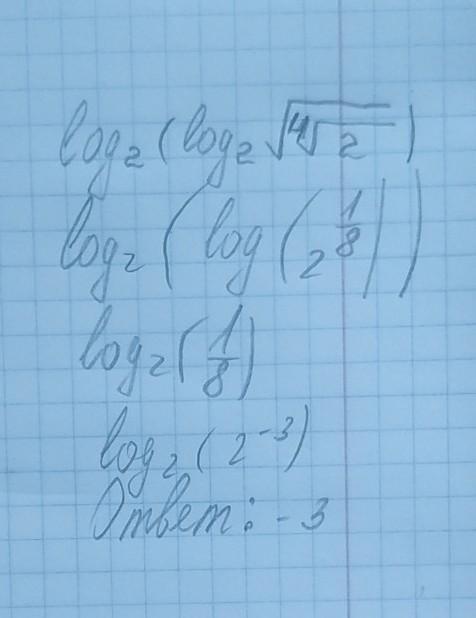 log₂(log₂√(∜2))
log₂(log(2^(1/8)))
log₂(1/8)
log₂(2⁻³)
Ответ: -3